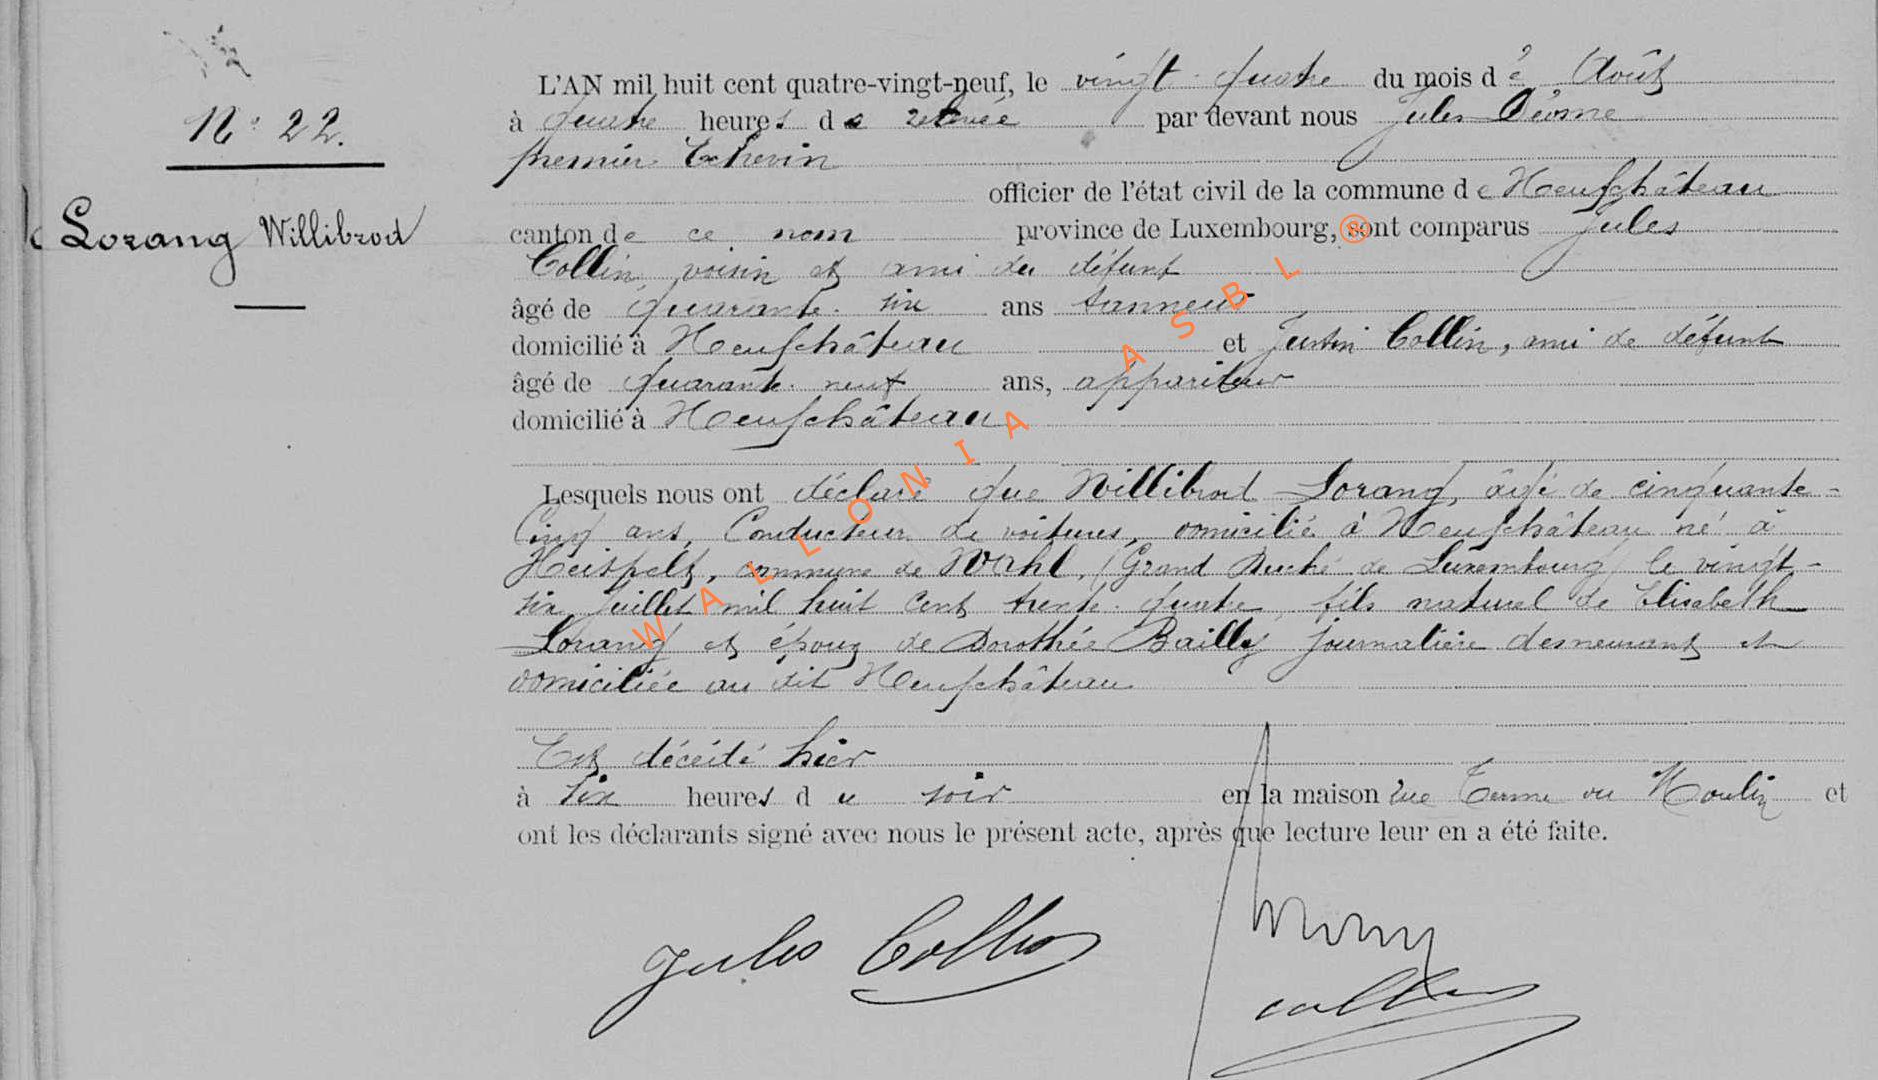 N° 22.
Lorang Willibrod
L'AN mil huit cent quatre-vingt-neuf, le vingt-quatre du mois d'Août
à quatre heures de relevée par devant nous Jules
premier Echevin
officier de l'état civil de la commune de Neufchâteau
canton de ce nom province de Luxembourg, sont comparus Jules
Collin, voisin et ami du défunt
âgé de quarante-six ans tanneur
domicilié à Neufchâteau et Justin Collin, ami de défunt
âgé de quarante-neuf ans, appariteur
domicilié à Neufchâteau
Lesquels nous ont déclaré que Willibrod Lorang, âgé de cinquante-
cinq ans, Conducteur de voitures, domicilié à Neufchâteau né à
Heispelt, commune de Wahl, (Grand Duché de Luxembourg) le vingt-
six Juillet mil huit cent trente-quatre, fils naturel de Elisabeth
Lorang et époux de Dorothée Bailly journalière demeurant et
domiciliée au dit Neufchâteau
Est décédé hier
à six heures du soir en la maison rue Terme ou Moulin et
ont les déclarants signé avec nous le présent acte, après que lecture leur en a été faite.
Jules Collin
Collin
WALLONIA ASBL ®